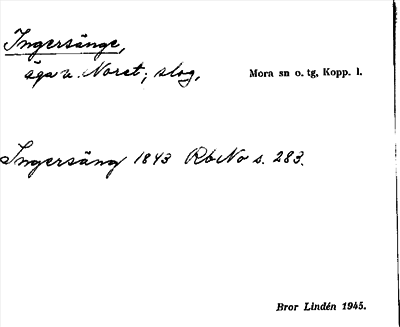 Ingersänge,
äga v. Noret; slog.
Mora sn o. tg, Kopp. l.
Ingersäng 1843 RbNo s. 283.
Bror Lindén 1945.